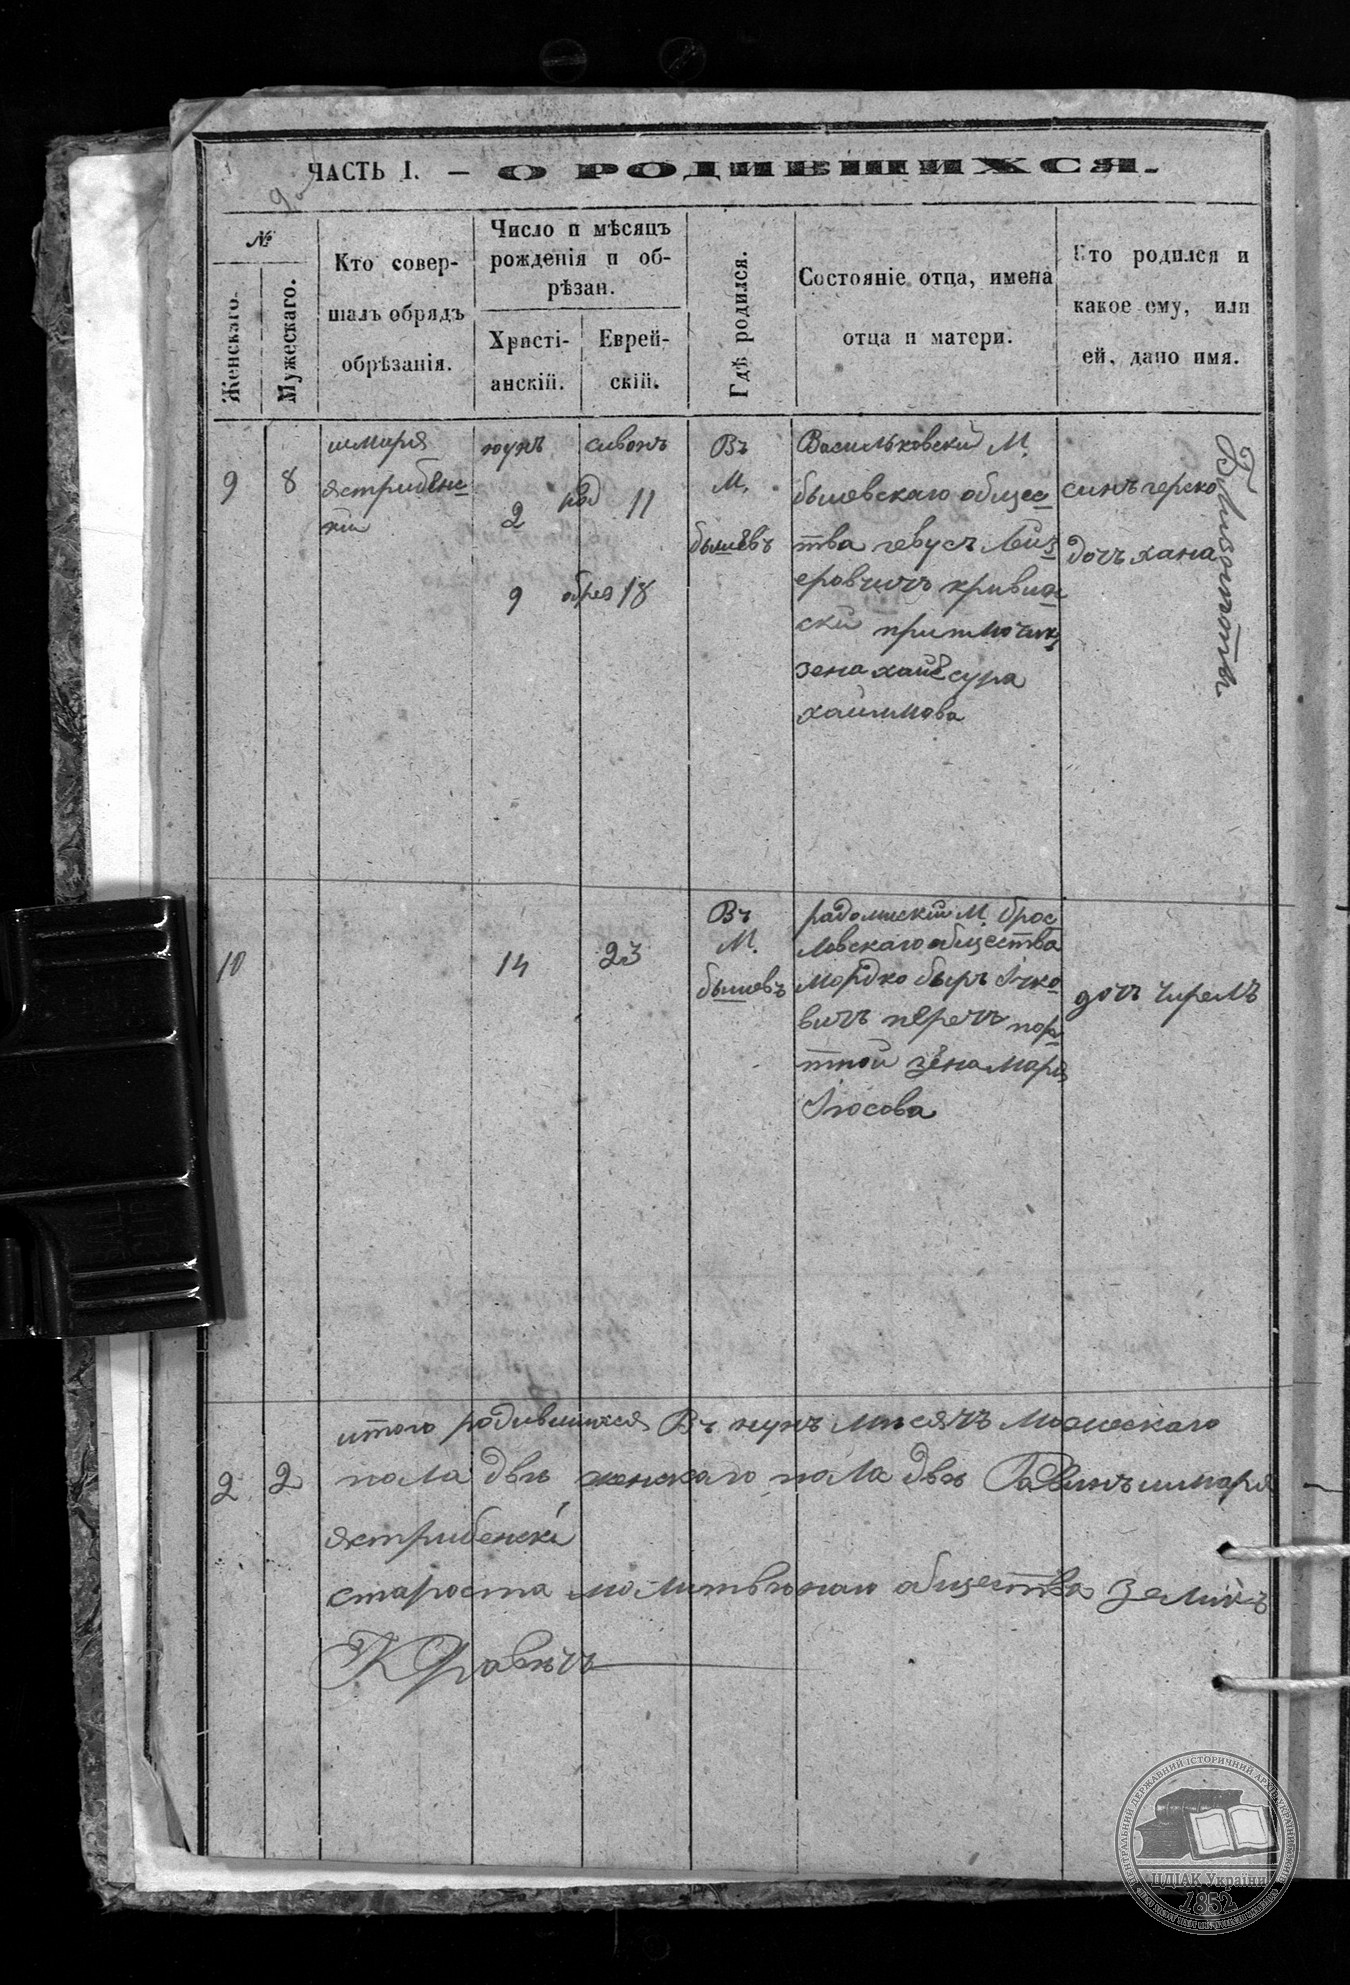 ЧАСТЬ I. — О РОДИВШИХСЯ.
№
Женскаго.
Мужескаго.
Кто совер-
шалъ обрядъ
обрѣзанія.
Число и мѣсяцъ
рожденія и об-
рѣзан.
Христі-
анскій.
Еврей-
скій.
Гдѣ родился.
Состояніе отца, имена
отца и матери.
Кто родился и
какое ему, или
ей, дано имя.
9
8
шмаря
ястрибенс-
кій
юунъ
2
9
сивонъ
род 11
обрез 18
Въ
М.
бышевъ
Васильковскій М.
бышевскаго общес-
тва
Лейз-
еровичъ
зена хаие сура
хаимова
синъ герско
дочъ хана
10
14
23
Въ
М.
бышевъ
радомискій М. брос-
ловскаго общества
мордко беръ Ічко-
вичъ перечъ пор-
тной зена маря
Іосова
дочъ
2
2
итого родившихся Въ юунъ мисяцъ можескаго
пола двѣ женскаго пола двѣ Равинъ шмаря
ястрибенскі
староста молитвенаго общества Зеликъ
Кравецъ
ЦЕНТРАЛЬНИЙ ДЕРЖАВНИЙ ІСТОРИЧНИЙ АРХІВ УКРАЇНИ
ЦДІАК України
1852